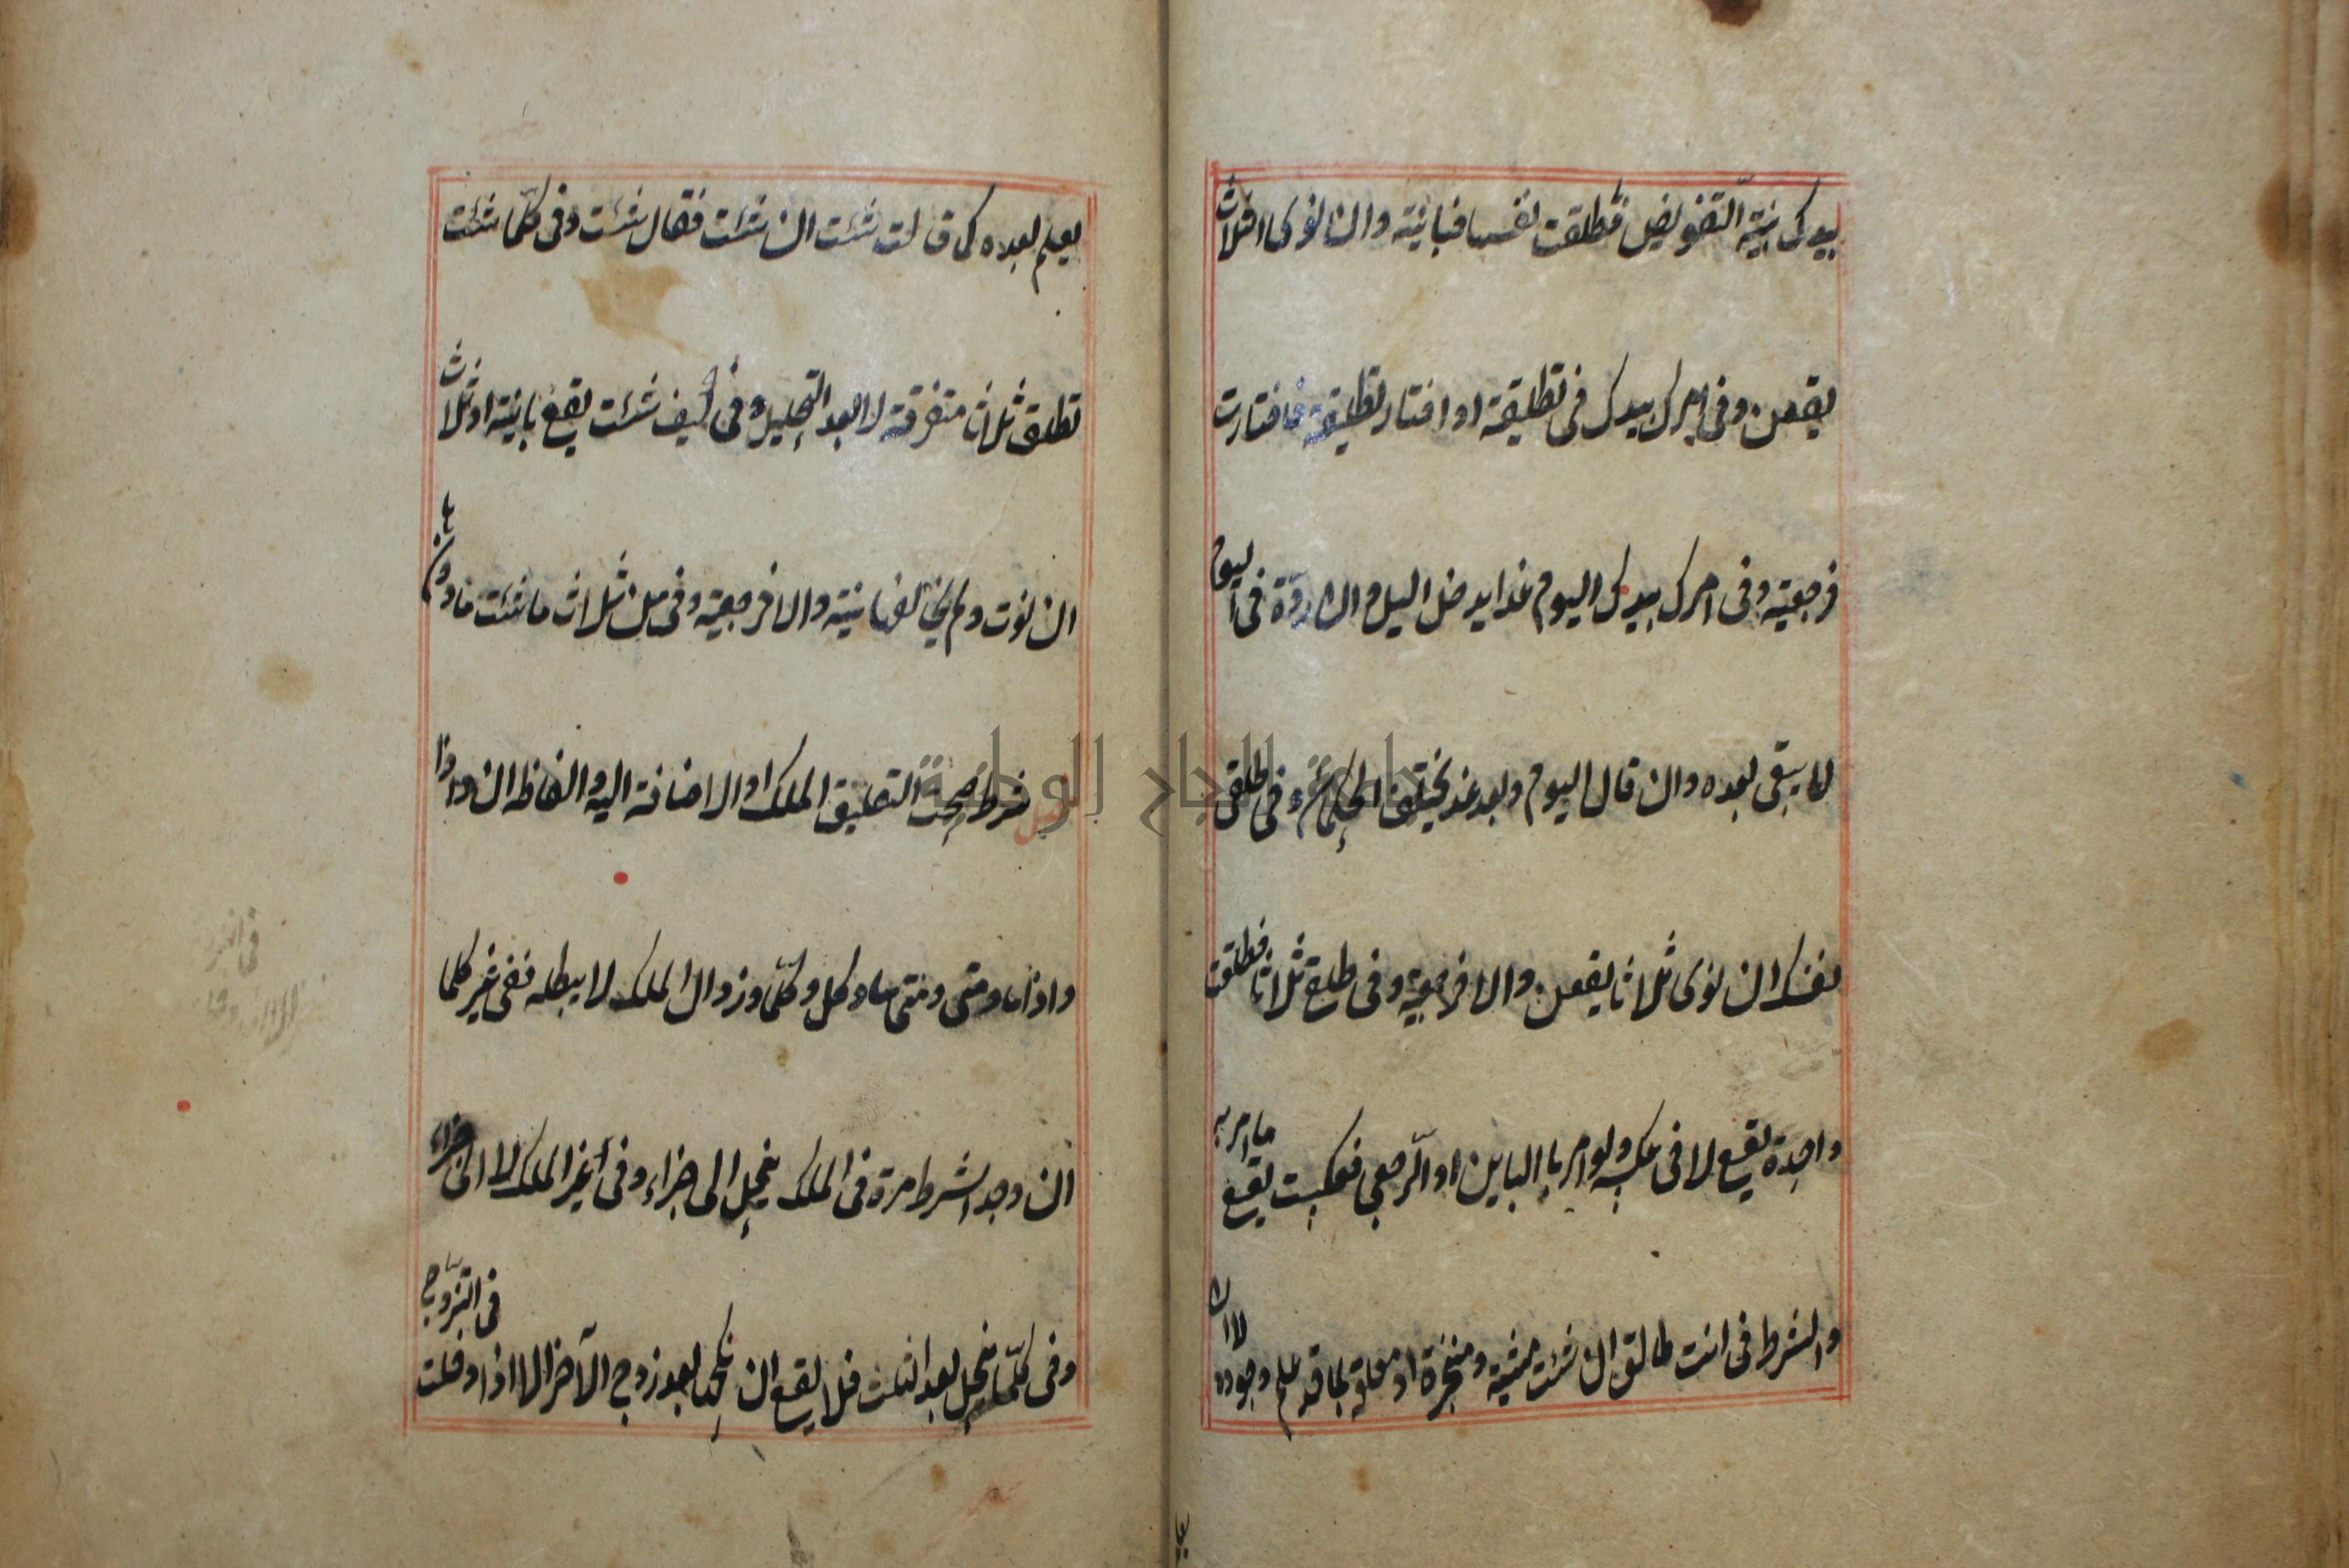 بيدك بنية التفويض فطلقت نفسها فبائنة وان نوى الثلاث
يقعن وفى امرك بيدك فى تطليقة او اختار تطليقة فاختارت
فرجعية وفى امرك بيدك اليوم غدا يدخل اليل وان ردّه فى اليوم
لا يبقى بعده وان قال اليوم وبعد غد يختلف الحكم وفى طلقى
نفسك ان نوى ثلاثا يقعن والا فرجعية وفى طلق ثلاثا فطلقت
واحدة يقع لا فى عكسه ولو امر با الباين او الرّجعى فعكست يقع ما امر به
والشرط فى انت طالق ان شئت مشية منجزة او معلقة بما قد علم وجوده لا ان
يعلم بعده كما قالت شئت ان شئت فقال شئت وفى كلّما شئت
تطلق ثلاثا متفرقة لا بعد التحليل وفى كيف شئت يقع باينة او ثلاث
ان نوت ولم يخالف باينية والا فرجعية وفى من ثلاث ما شئت ما دونها
شرط صحت التعليق الملك او الاضافة اليه والفاظه ان واذا
واذاما ومتى ومتى ما وكل وكلّما وزوال الملك لا يبطله ففى غير كلما
ان وجد الشرط مرة فى الملك ينحل الى جزاء وفى غير الملك لا الى جزاء
وفى كلّما ينحل بعد الثلث فلا يقع ان نكحها بعد زوج الآخر الا اذا دخلت فى التزوّج
جامعة النجاح الوطنية